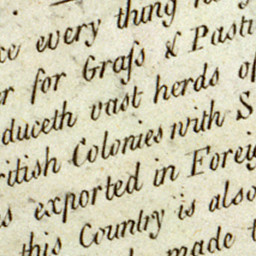 every thing
for Graſs & Paſtu
duceth vast herds of
ritish Colonies with S
exported in Foreig
this Country is also
made t